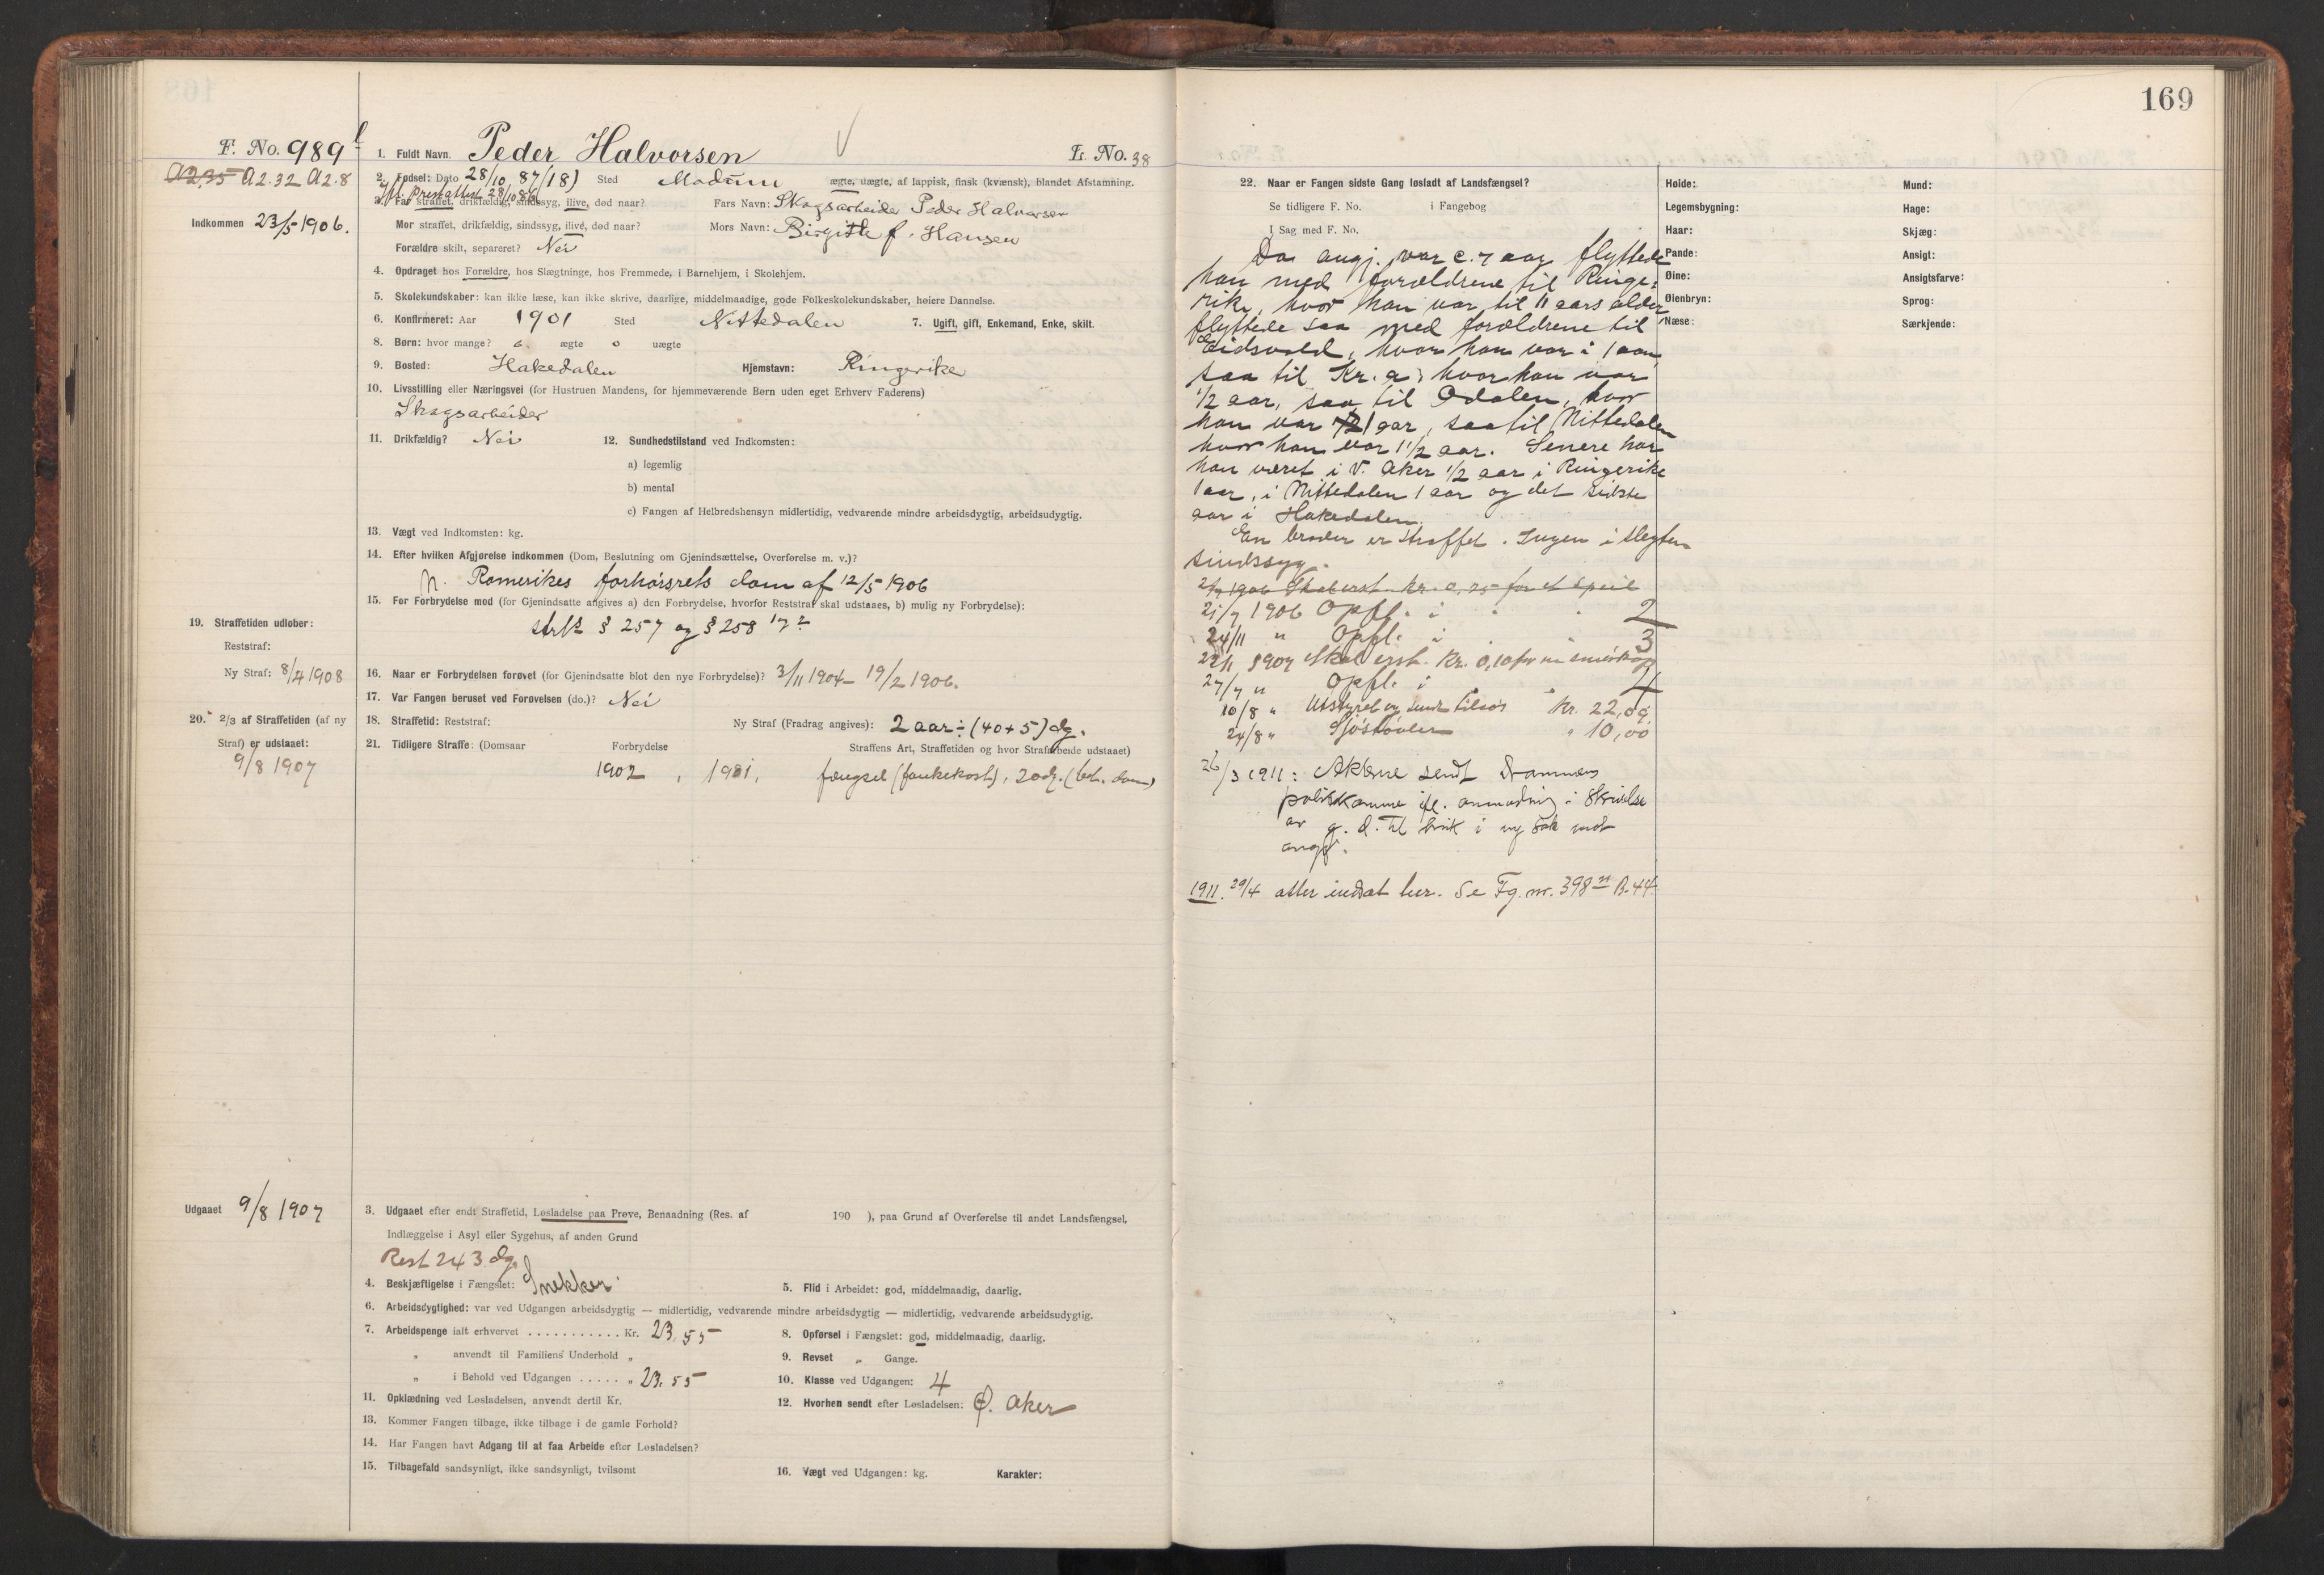 169
F. No. 989
A2.35 A2.32 A2.8
Indkommen 23/5 1906.
1. Fuldt Navn. Peder Halvorsen
L. No. 38
2. Fødsel: Dato 28/10 87 (18) Sted Modum ægte, uægte, af lappisk, finsk (kvænsk), blandet Afstamning.
3. Far straffet, drikfældig, sindssyg, ilive, død naar? Fars Navn: Skogsarbeider Peder Halvorsen
Mor straffet, drikfældig, sindssyg, ilive, død naar? Mors Navn: Birgitte f. Hansen
Forældre skilt, separeret? Nei
4. Opdraget hos Forældre, hos Slægtninge, hos Fremmede, i Barnehjem, i Skolehjem.
5. Skolekundskaber: kan ikke læse, kan ikke skrive, daarlige, middelmaadige, gode Folkeskolekundskaber, høiere Dannelse.
6. Konfirmeret: Aar 1901 Sted Nittedalen 7. Ugift, gift, Enkemand, Enke, skilt.
8. Børn: hvor mange? o. ægte o uægte
9. Bosted: Hakedalen Hjemstavn: Ringerike
10. Livsstilling eller Næringsvei (for Hustruen Mandens, for hjemmeværende Børn uden eget Erhverv Faderens)
Skogsarbeider
11. Drikfældig? Nei 12. Sundhedstilstand ved Indkomsten:
a) legemlig
b) mental
c) Fangen af Helbredshensyn midlertidig, vedvarende mindre arbeidsdygtig, arbeidsudygtig.
13. Vægt ved Indkomsten: kg.
14. Efter hvilken Afgjørelse indkommen (Dom, Beslutning om Gjenindsættelse, Overførelse m. v.)?
N. Romerikes forhørsrets dom af 12/5 1906
15. For Forbrydelse mod (for Gjenindsatte angives a) den Forbrydelse, hvorfor Reststraf skal udstaaes, b) mulig ny Forbrydelse):
strl § 257 og § 258
19. Straffetiden udløber:
Reststraf:
Ny Straf: 8/4 1908
16. Naar er Forbrydelsen forøvet (for Gjenindsatte blot den nye Forbrydelse)? 3/11 1904 – 19/2 1906.
17. Var Fangen beruset ved Forøvelsen (do.)? Nei
20. 2/3 af Straffetiden (af ny
Straf) er udstaaet:
9/8 1907
18. Straffetid: Reststraf: Ny Straf (Fradrag angives): 2 aar ÷ (40+5) dg.
21. Tidligere Straffe: (Domsaar Forbrydelse Straffens Art, Straffetiden og hvor Strafarbeide udstaaet)
1902 fængsel (fankekost), 20 dg. (bet. dom)
Udgaaet 9/8 1907
3. Udgaaet efter endt Straffetid, Løsladelse paa Prøve, Benaadning (Res. af 190 ), paa Grund af Overførelse til andet Landsfængsel,
Indlæggelse i Asyl eller Sygehus, af anden Grund
Rest 243 dg.
4. Beskjæftigelse i Fængslet: Snekker 5. Flid i Arbeidet: god, middelmaadig, daarlig.
6. Arbeidsdygtighed: var ved Udgangen arbeidsdygtig — midlertidig, vedvarende mindre arbeidsdygtig — midlertidig, vedvarende arbeidsudygtig.
7. Arbeidspenge ialt erhvervet . . . . . . . . . . . Kr. 23.55 8. Opførsel i Fængslet: god, middelmaadig, daarlig.
„ anvendt til Familiens Underhold „ 9. Revset „ Gange.
„ i Behold ved Udgangen . . . . . „ 23.55 10. Klasse ved Udgangen: 4
11. Opklædning ved Løsladelsen, anvendt dertil Kr. 12. Hvorhen sendt efter Løsladelsen: Ø. Aker
13. Kommer Fangen tilbage, ikke tilbage i de gamle Forhold?
14. Har Fangen havt Adgang til at faa Arbeide efter Løsladelsen?
15. Tilbagefald sandsynligt, ikke sandsynligt, tvilsomt 16. Vægt ved Udgangen: kg. Karakter:
22. Naar er Fangen sidste Gang løsladt af Landsfængsel?
Se tidligere F. No. i Fangebog
I Sag med F. No.
Da angj. var c. 7 aar flyttede
han med forældrene til Ringe-
rike, hvor han var til 11 aars alder
flyttede saa med forældrene til
Eidsvold, hvor han var i 1 aar,
saa til Kr. a; hvor han var
1/2 aar, saa til Odalen, hvor
han var 1 aar, saa til Nittedalen
hvor han var 1 1/2 aar. Senere har
han været i V. Aker 1/2 aar i Ringerike
1 aar, i Nittedalen 1 aar og det sidste
aar i Hakedalen.
En broder er straffet. Ingen i slegten
sindssyg.
1906 Skal erst. kr. 0,25 for et speil
21/7 1906 Opfl. i " " 2
24/11 " Opfl. i " " 3
22/1 1907 Skal erst. Kr. 0,10 for en smørkop
27/7 " Opfl. i " " 4
10/8 " Utstyret og sendt tilsøs Kr. 22,09
24/8 " Sjøstøvler " 10,00
26/3 1911: Akterne sendt Drammens
politikamme ifl. anmodning i skrivelse
av g. d. til bruk i ny sak mot
angj.
1911. 29/4 atter indsat her. Se Fg. nr. 398 B. 44.
Høide:
Legemsbygning:
Haar:
Pande:
Øine:
Øienbryn:
Næse:
Mund:
Hage:
Skjæg:
Ansigt:
Ansigtsfarve:
Sprog:
Særkjende: